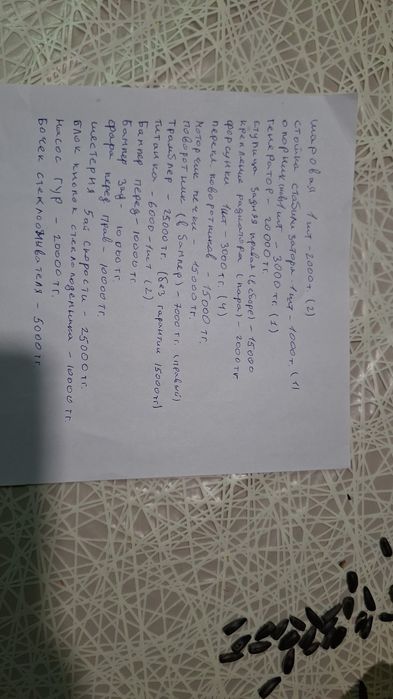 шаровая 1шт-2000т. (2)
стойка стабилизатора 1шт. 1000т. (1)
опорник 1шт - 3000тг. (1)
Генератор - 20000 тг.
ступица задняя правая (в сборе) - 15000
крепления радиатора (пара) - 2000тг
форсунки 1шт - 3000тг. (4)
перекл поворотников - 15000 тг.
моторчик печки - 15000 тг.
поворотник (в бампер) - 7000тг. (правый)
трамблер - 25000тг. (без гарантии 15000тг)
титанка - 6000-1шт (2)
Бампер перед - 10000 тг
Бампер зад - 10000тг.
фара перед прав - 10000 тг.
шестерня 5ой скорости - 25000 тг.
Блок кнопок стеклоподъемника - 10000 тг.
насос ГУР - 20000 тг.
Бочек стеклоомывателя - 5000 тг